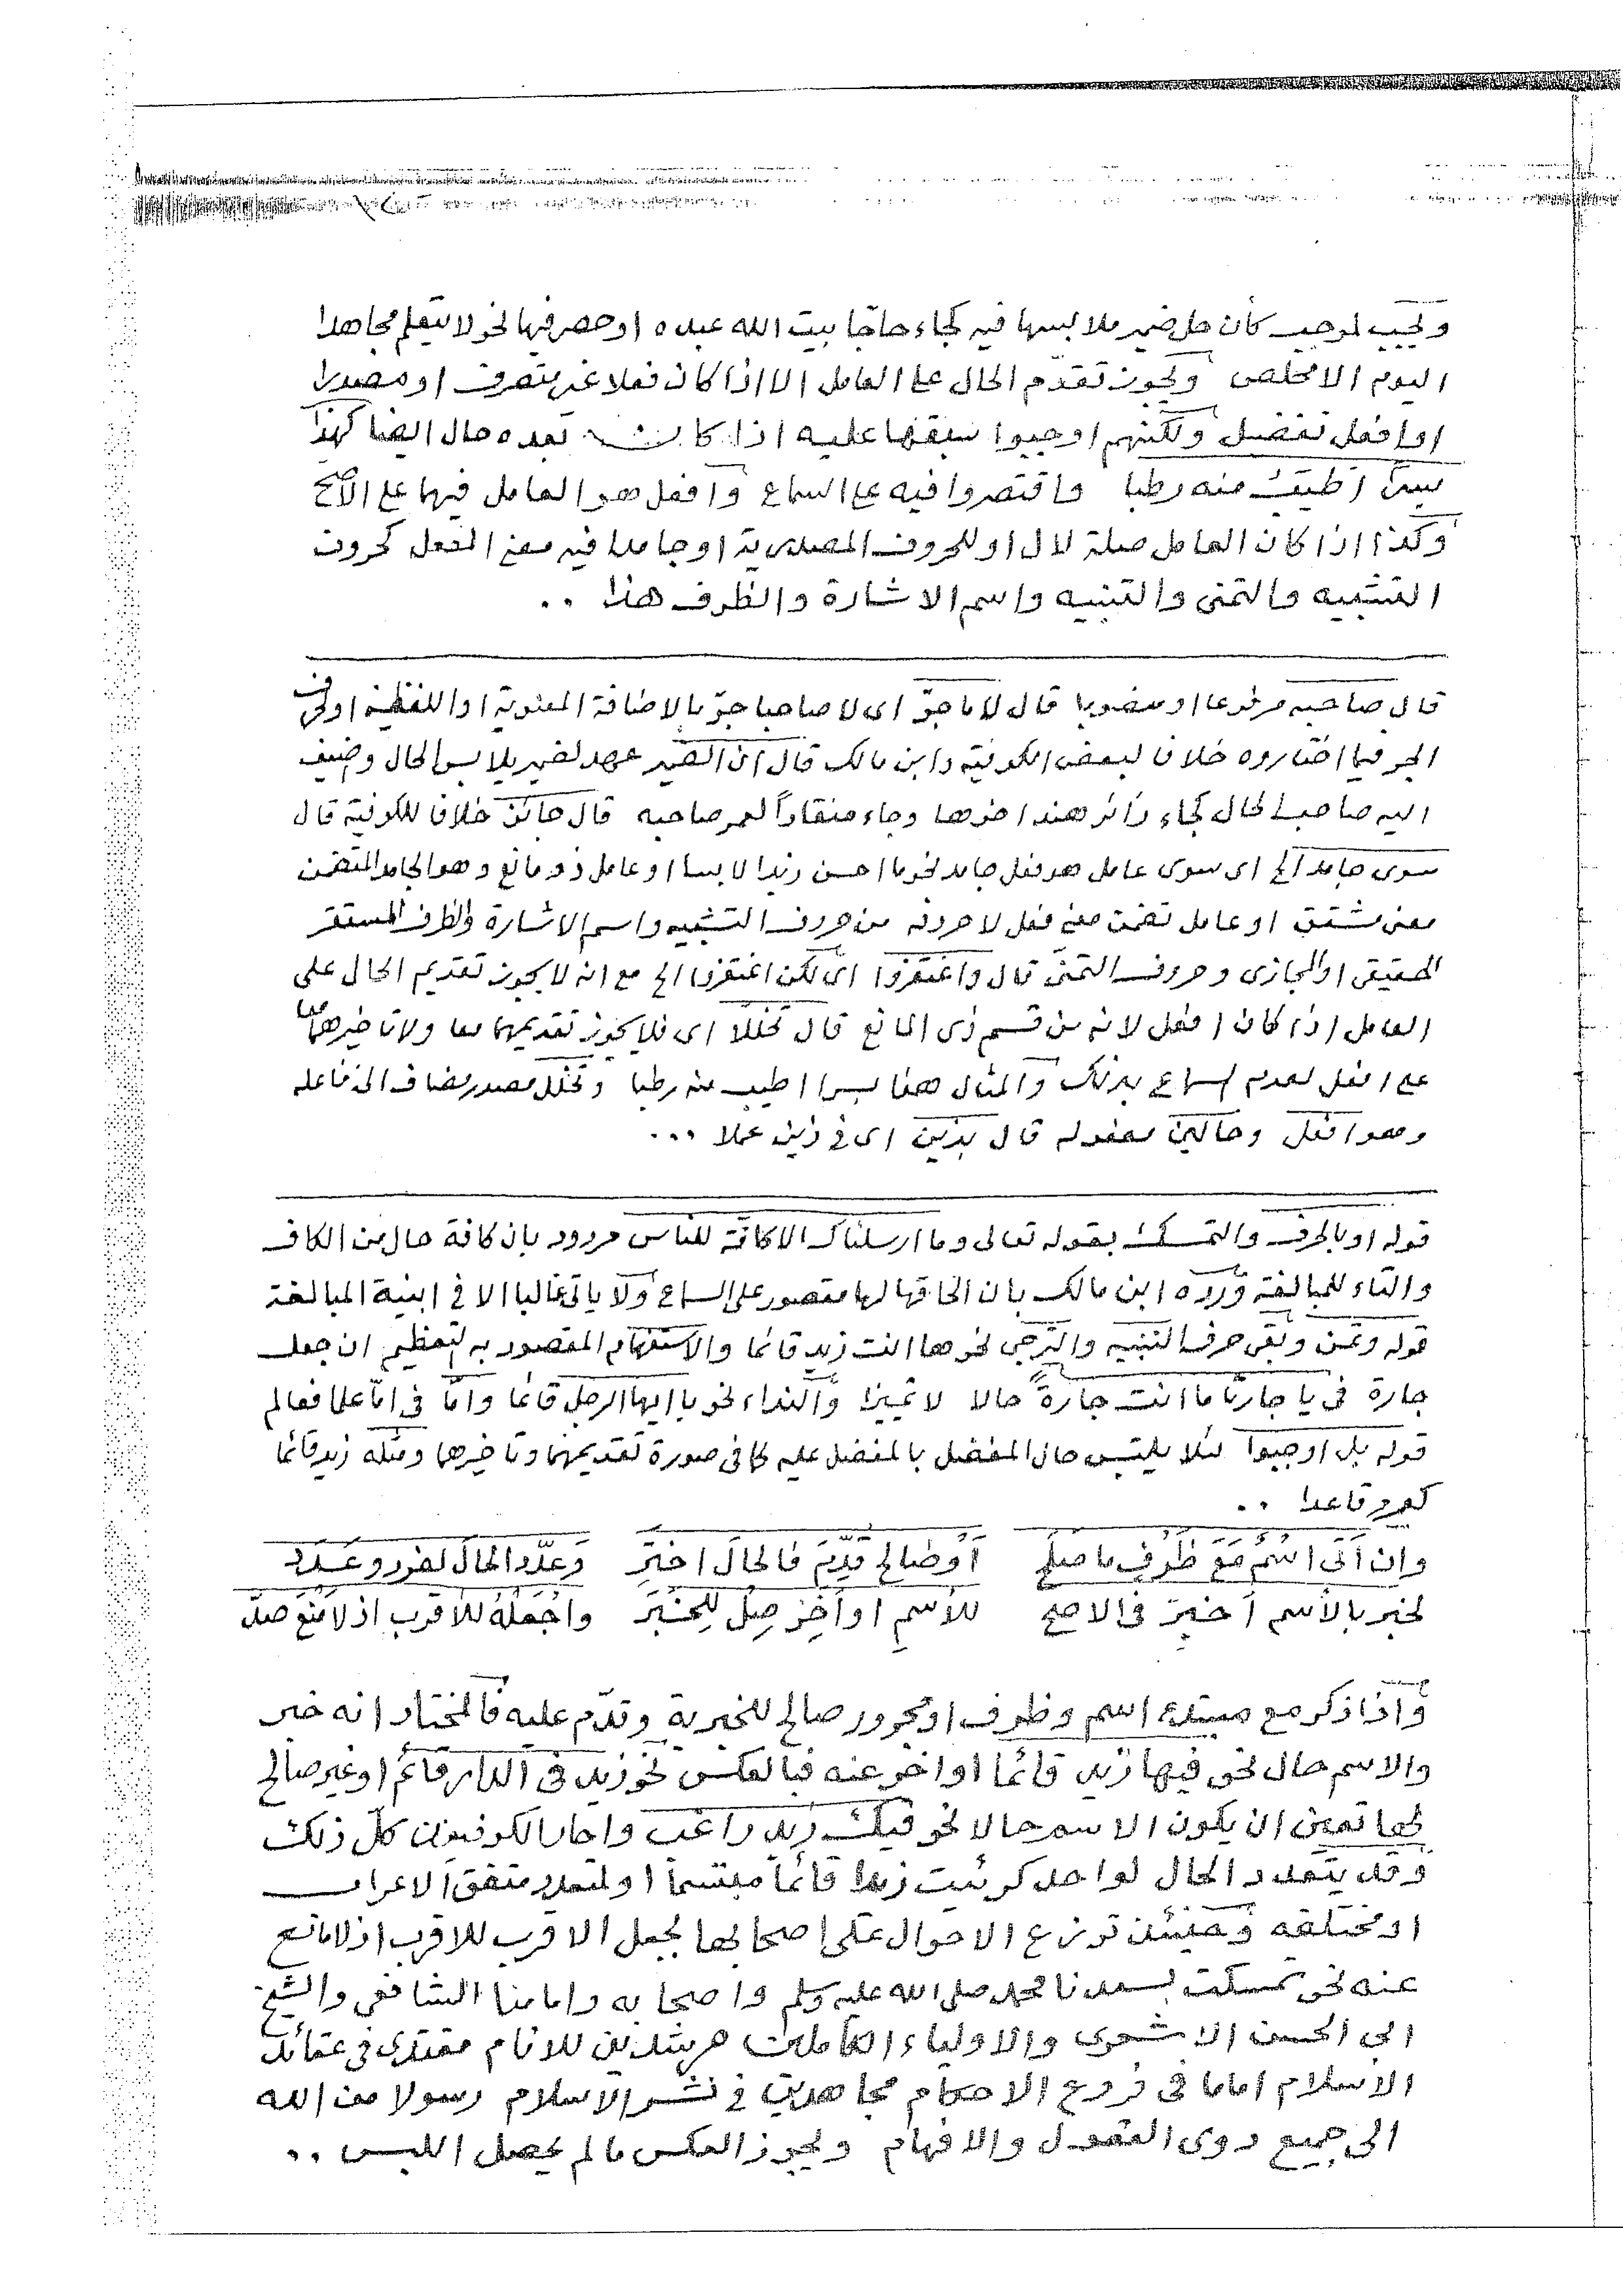 ويجب لموجب كأن حل ضمير ملابسها فيه كجاء حاجّا بيت الله عبده او حصر فيها نحو لا يتعلم مجاهدا
اليوم الا مخلص ويجوز تقدّم الحال على العامل الا اذا كان فعلا غير متصرف او مصدرا
او افعل تفضيل ولكنهم اوجبوا سبقها عليه اذا كانت بعده حال ايضا كهذا
بسرًا اطيب منه رطبا واقتصروا فيه على السماع وافعل هو العامل فيهما على الأصح
وكذا اذا كان العامل صلة لال او للحروف المصدرية او جامدا فيه معنى الفعل كحروف
التشبيه والتمنى والتنبيه واسم الاشارة والظرف هذا ..
قال صاحبه مرفوعا او منصوبا قال لا ما جرّ اى لا صاحبا جرّ بالاضافة المعنوية او اللفظية او حرف
الجر فيما اختاروه خلافا لبعض الكوفية وابن مالك قال ان الضمير عهد لضمير يلابس الحال واضيف
اليه صاحب الحال كجاء زائر هند اخوها وجاء منقادًا لعمر صاحبه قال جائز خلافا للكوفية قال
سوى جامد الخ اى سوى عامل هو فعل جامد نحو ما احسن زيدا لابسا او عامل ذو مانع وهو الجامد المتضمن
معنى مشتق او عامل تضمن معنى فعل لا حروفه من حروف التشبيه واسم الاشارة والظرف المستقر
الحقيقى او المجازى وحروف التمنى قال واغتفروا اى لكن اغتفروا الخ مع انه لا يجوز تقديم الحال على
العامل اذا كان افعل لانه من قسم ذى المانع قال تخللا اى فلا يجوز تقديمهما معا ولا تاخيرهما معا
على افعل لعدم السماع بذلك والمثال هذا بسرا اطيب منه رطبا وتخلل مصدر مضاف الى فاعله
وهو افعل وحالين مفعوله قال بذين اى فى ذين عملا ...
قوله او بالحرف والتمسك بقوله تعالى وما ارسلناك الا كافّة للناس مردود بان كافة حال من الكاف
والتاء للمبالغة وردّه ابن مالك بان الحاقها لها مقصور على السماع ولا ياتى غالبا الا فى ابنية المبالغة
قوله وتمن وبقى حرف التنبيه والترجى نحو ها انت زيد قائما والاستفهام المقصود به التعظيم ان جعل
جارة فى يا جارتا ما انت جارةً حالا لا تمييزا والنداء نحو يا ايها الرجل قائما وامّا فى امّا علما فعالم
قوله بل اوجبوا لئلا يلتبس حال المفضل بالمفضل عليه كما فى صورة تقديمهما وتاخيرهما ومثله زيد قائما
كعمرو قاعدا ..
وان اتى اسْمٌ مَعَ ظرْفٍ ما صلح أوْ صالح قدّم فالحال اختير وعدّد الحال لفرد وعدد
لخبر بالأسم أخبر فى الاصح للأسم او أخر صِلْ للخبر واجْعَلْهُ للأقرب اذ لا منع صدّ
واذا ذكر مع مبتدء اسم وظرف او مجرور صالح للخبرية وتقدّم عليه فالمختار انه خبر
والاسم حال نحو فيها زيد قائما او اخر عنه فبالعكس نحو زيد فى الدار قائم او غير صالح
لها تعين ان يكون الاسم حالا نحو فيك زيد راغب واجاز الكوفيون كلّ ذلك
وقد يتعدد الحال لواحد كرئيت زيدا قائما مبتسما او لمتعدد متفق الاعراب
او مختلفه وحينئذ توزع الاحوال على اصحابها بجعل الاقرب للاقرب اذ لا مانع
عنه نحو تمسكت بسيدنا محمد صلى الله عليه وسلم واصحابه وامامنا الشافعى والشيخ
ابى الحسن الاشعرى والاولياء الكاملين مرشدين للانام مقتدى فى عقائد
الاسلام اماما فى فروع الاحكام مجاهدين فى نشر الاسلام رسولا من الله
الى جميع ذوى العقول والافهام ويجوز العكس ما لم يحصل اللبس ..